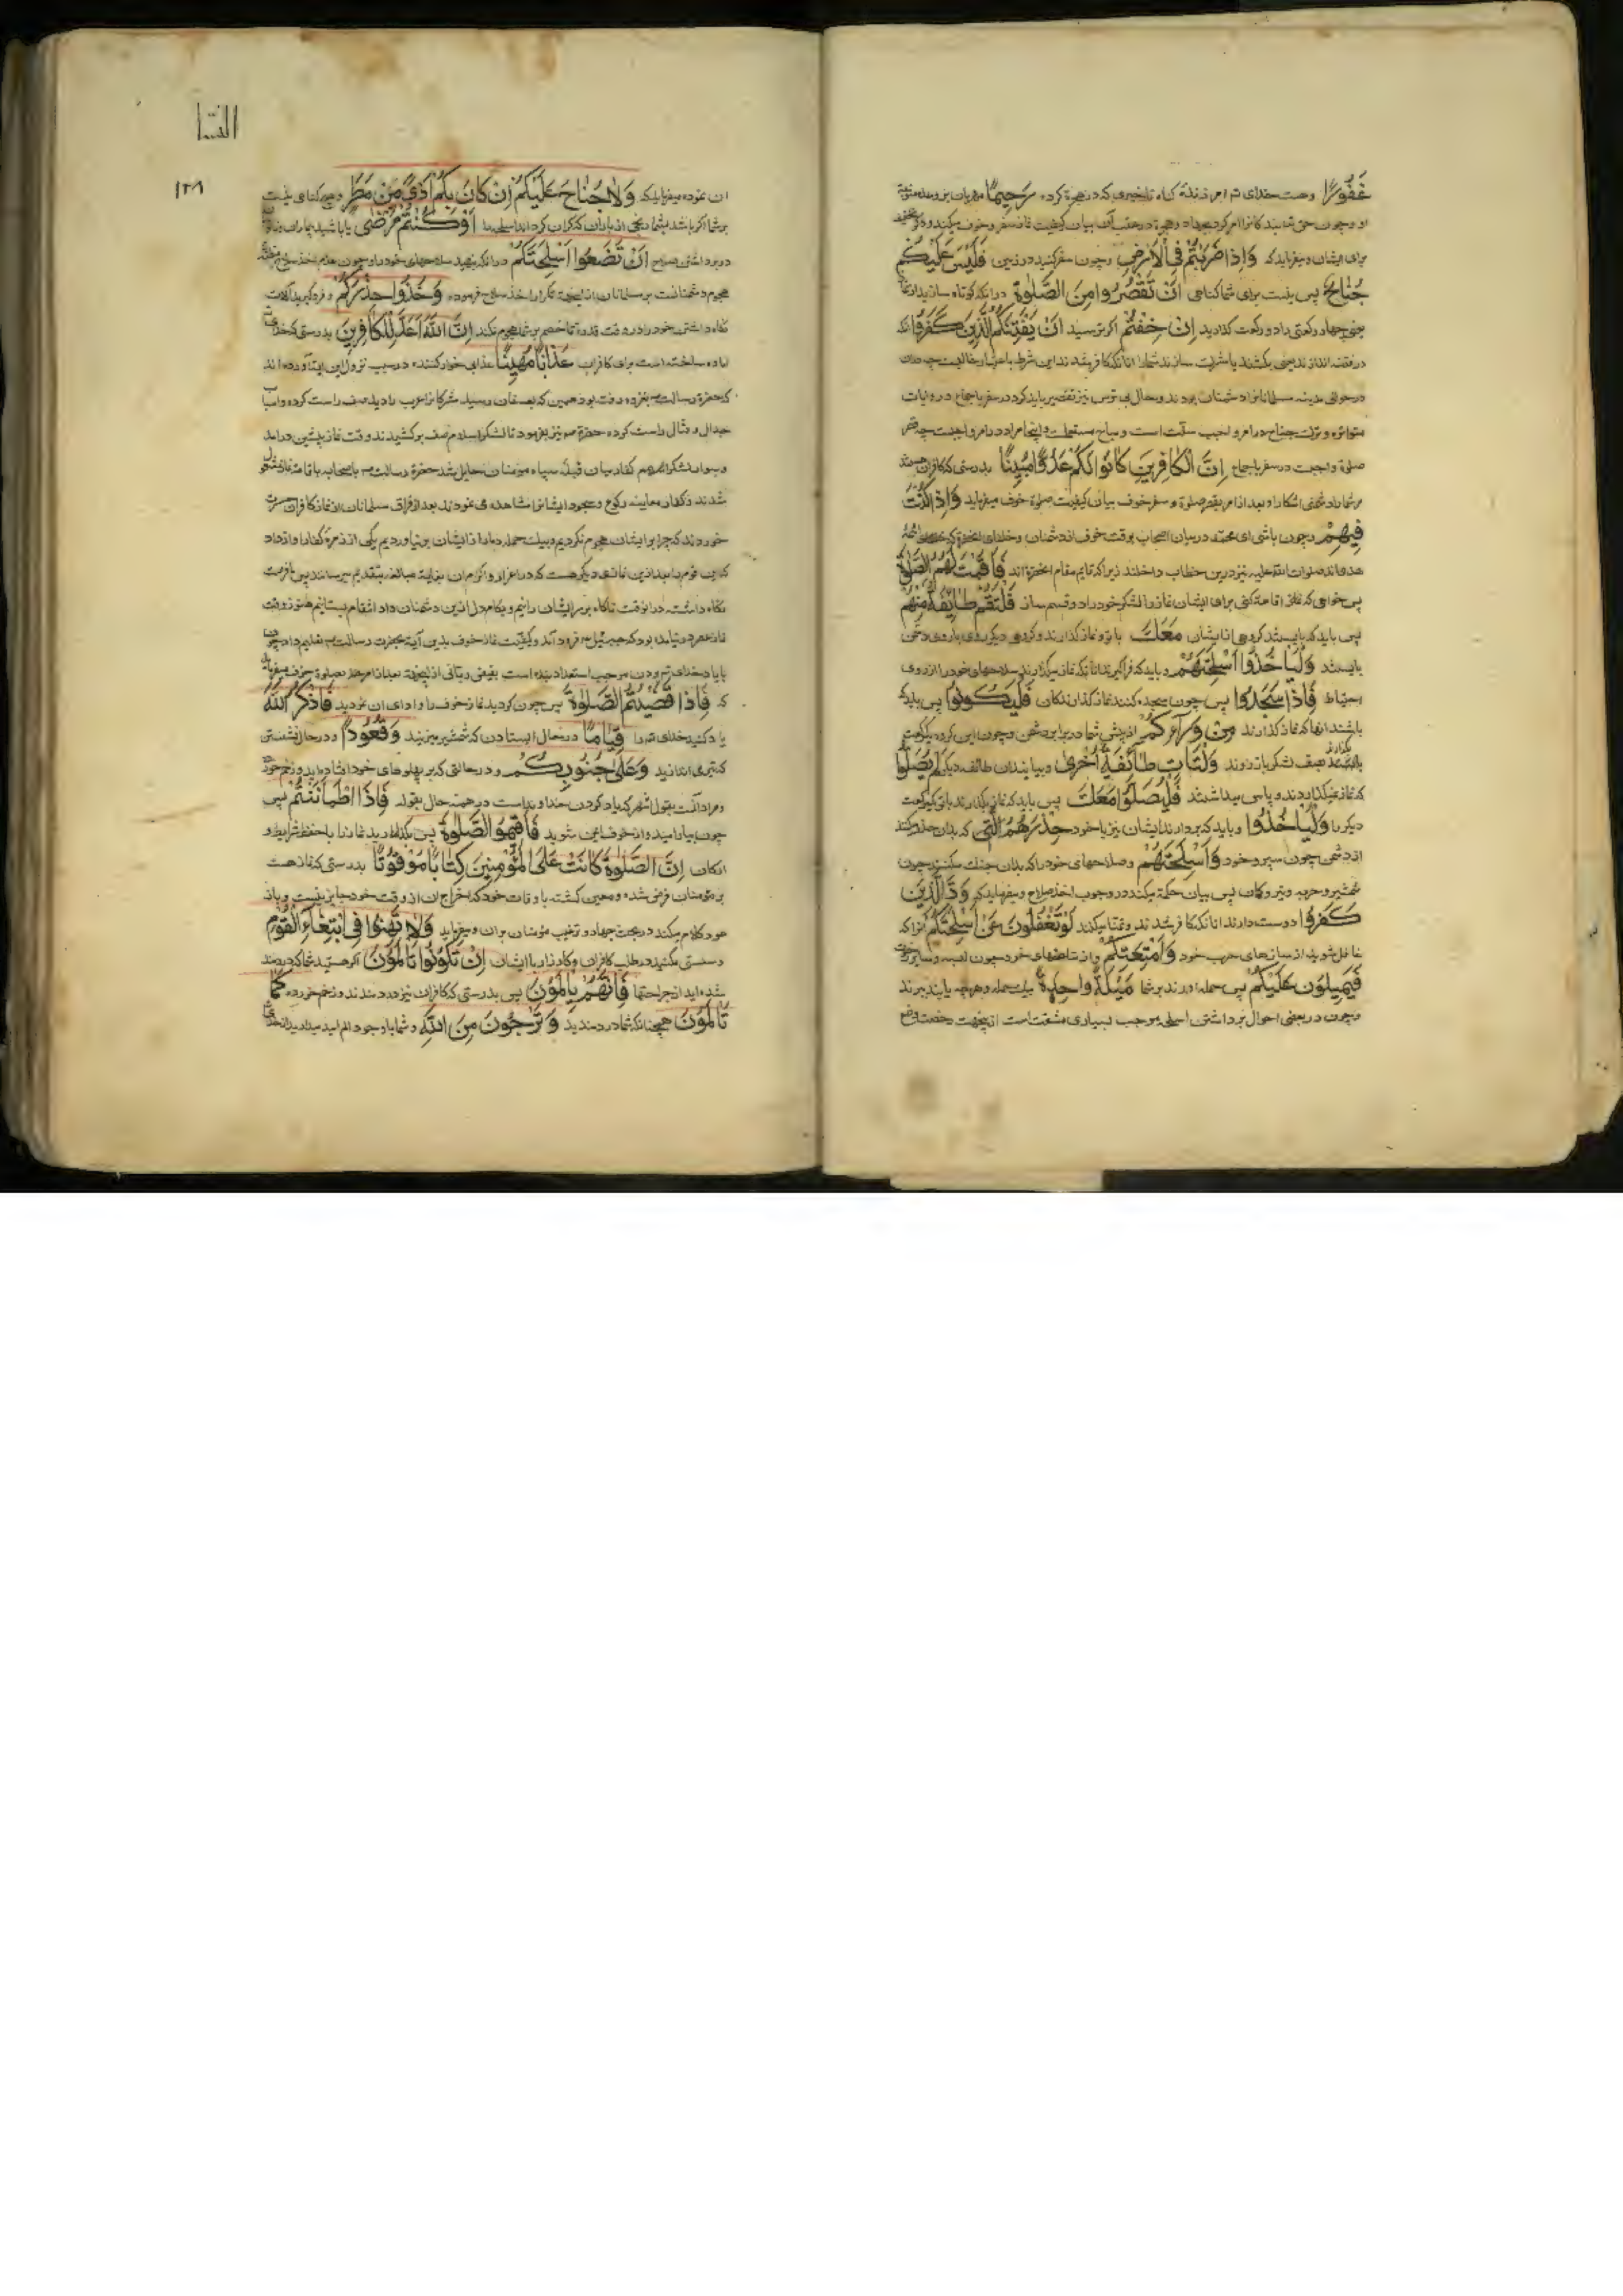 غَفُورًا وهست خدای تم امرزنده کناه تاخیری که در هجرة کرده رَحِيمًا مهربان بر وعده مثوبة
او وچون حق بندکانرا امر کرد بجهاد وهجرة در عقب آن بیان کیفیت نماز سفر وخوف میکند
برای ایشان ومیفرماید که وَاِذَا ضَرَبْتُمْ فِي الْاَرْضِ وچون سفر کنید در زمین فَلَيْسَ عَلَيْكُمْ
جُنَاحٌ پس نیست برای شما کناهی اَنْ تَقْصُرُوا مِنَ الصَّلٰوةِ در آنکه کوتاه سازید از نماز
یعنی چهار رکعتی را دو رکعت کذارید اِنْ خِفْتُمْ اکر ترسید اَنْ يَفْتِنَكُمُ الَّذِينَ كَفَرُوا آنکه
در فتنه اندازند یعنی بکشند یا شما را انانکه کافر شدند این شرط باعتبار غالبست چه
در حوالی مدینه مسلمانانرا دشمنان بودند ودر حال بی ترس نیز تقصیر باید کرد در سفر باجماع در روایات
متواتره و جناح در امر واجب است و مباح مستعملست واینجا مراد در امر واجبست چه قصر
صلوة واجبست در سفر باجماع اِنَّ الْكَافِرِينَ كَانُوا لَكُمْ عَدُوًّا مُبِينًا بدرستی که کافران هستند
مر شما را دشمنی اشکارا و بعد از امر بقصر صلوة و سفر وخوف بیان کیفیت صلوة خوف میفرماید وَاِذَا كُنْتَ
فِيهِمْ وچون باشی ای محمد در میان اصحاب بوقت خوف از دشمنان وخلفای انحضرة که
هدی اند صلوات الله علیه نیز درین خطاب داخلند زیرا که قایم مقام انحضرة اند فَاَقَمْتَ لَهُمُ الصَّلٰوةَ
پس خواهی که نماز اقامه کنی برای ایشان نماز را لشکر خود را دو قسم ساز فَلْتَقُمْ طَائِفَةٌ مِنْهُمْ
پس باید که بایستند کروهی از ایشان مَعَكَ با تو ونماز کذارند وکروهی دیکر روی با روی دشمن
بایستند وَلْيَأْخُذُوا اَسْلِحَتَهُمْ وباید که فراکیرند آنانکه نماز میکذارند سلاحهای خود را از روی
احتیاط فَاِذَا سَجَدُوا پس چون سجده کنند نماز کذارندکان فَلْيَكُونُوا پس باید که
باشند انها که نماز کذارند مِنْ وَرَائِكُمْ از پس شما در برابر دشمن وچون این کروه یکرکعت
بصف لشکر بازروند وَلْتَأْتِ طَائِفَةٌ اُخْرٰى وبیایند ان طائفه دیکر لَمْ يُصَلُّوا
که نماز نکذارده اند وپاس میداشتند فَلْيُصَلُّوا مَعَكَ پس باید که نماز بکذارند با تو یکرکعت
دیکر را وَلْيَأْخُذُوا وباید که بردارند ایشان نیز با خود حِذْرَهُمْ التی که بدان حذر کنند
از دشمن چون سپر وخود وَاَسْلِحَتَهُمْ وصلاحهای خود را که بدان جنک میکنند چون
شمشیر وحربه وتیر وکمان پس بیان حکمة میکند در وجوب اخذ صلاح ومیفرماید که وَدَّ الَّذِينَ
كَفَرُوا دوست دارند انانکه کافر شدند وتمنا میکنند لَوْ تَغْفُلُونَ عَنْ اَسْلِحَتِكُمْ آنرا که
غافل شوید از سازهای حرب خود وَاَمْتِعَتِكُمْ واز متاعهای خود چون البسه وسایر
فَيَمِيلُونَ عَلَيْكُمْ پس حمله اورند بر شما مَيْلَةً وَاحِدَةً بیک حمله وهرچه یابند ببرند
وچون در بعضی احوال برداشتن اسلحه موجب بسیاری مشقت است ازینجهت رخصت وضع
النسا
۱۲۸
ان نموده میفرماید که وَلَا جُنَاحَ عَلَيْكُمْ اِنْ كَانَ بِكُمْ اَذًى مِنْ مَطَرٍ وهیچ کناهی نیست
بر شما اکر باشد بشما رنجی از باران که کران کرداند اسلحه را اَوْ كُنْتُمْ مَرْضٰى یا باشید بیماران وناتوان
در برداشتن صلاح اَنْ تَضَعُوا اَسْلِحَتَكُمْ در آنکه بنهید سلاحهای خود را وچون عدم اخذ سلاح
هجوم دشمنانست بر مسلمانان ازینجهت تکرار اخذ سلاح فرموده وَخُذُوا حِذْرَكُمْ وفراکیرید آلات
نکاه داشتن خود را در وقت قدرة تا خصم بر شما هجوم نکند اِنَّ اللهَ اَعَدَّ لِلْكَافِرِينَ بدرستی که خدا
اماده ساخته است برای کافران عَذَابًا مُهِينًا عذابی خوار کننده در سبب نزول این ایت آورده اند
که حضرة رسالت بغزوه رفته بود همین که بعسفان رسید مشرکان عرب را دید صف راست کرده واسباب
جدال وقتال راست کرده حضرة ص نیز بفرمود تا لشکر اسلام صف برکشیدند وقت نماز پیشین درآمد
وسواد لشکر کفار میان قبله وسپاه مومنان حایل شد حضرة رسالت با صحابه باقامة نماز مشغول
شدند وکفار معاینه رکوع وسجود ایشانرا مشاهده می نمودند بعد از فراق مسلمانان از نماز کافران حسرت
خوردند که چرا بر ایشان هجوم نکردیم وبیک حمله دمار از ایشان برنیاوردیم یکی از زمره کفار اواز داد
که ای قوم بعد ازین نمازی دیکر هست که در اعزاز واکرام ان بغایت مبالغه بتقدیم میرسانند پس فرصت
نکاه داشته در انوقت ناکاه بر سر ایشان رانیم وبکام دل ازین دشمنان داد انتقام بستانیم هنوز وقت
نماز عصر درنیامده بود که جبرئیل فرود آمد وکیفیت نماز خوف بدین آیة بحضرت رسالت تعلیم داد
که فَاِذَا قَضَيْتُمُ الصَّلٰوةَ پس چون کردید نماز خوف را وادای ان نمودید فَاذْكُرُوا اللهَ
یاد کنید خدای تم را قِيَامًا در حال ایستادن که شمشیر میزنید وَقُعُودًا ودر حال نشستن
که تیر می اندازید وَعَلٰى جُنُوبِكُمْ ودر حالتی که بر پهلوهای خود افتاده اید وزخم خورده
ومراد آنست بقول اشهر که یاد کردن خداوند است در همه حال بقوله فَاِذَا اطْمَأْنَنْتُمْ پس
چون بیارامید واز خوف ایمن شوید فَاَقِيمُوا الصَّلٰوةَ پس بکذارید نماز را با حفظ شرایط و
ارکان اِنَّ الصَّلٰوةَ كَانَتْ عَلَى الْمُؤْمِنِينَ كِتَابًا مَوْقُوتًا بدرستی که نماز هست
بر مؤمنان فرض شده ومعین کشته باوقات خود که اخراج ان از وقت خود جایز نیست وباز
عود کلام میکند در بحث جهاد وترغیب مؤمنان بران ومیفرماید وَلَا تَهِنُوا فِي ابْتِغَاءِ الْقَوْمِ
وسستی مکنید در طلب کافران وکارزار با ایشان اِنْ تَكُونُوا تَأْلَمُونَ اکر هستید شما که دردمند
شده اید از جراحتها فَاِنَّهُمْ يَأْلَمُونَ پس بدرستی که کافران نیز دردمندند وزخم خورده كَمَا
تَأْلَمُونَ همچنانکه شما دردمندید وَتَرْجُونَ مِنَ اللهِ وشما با وجود الم امید میدارید از خدای